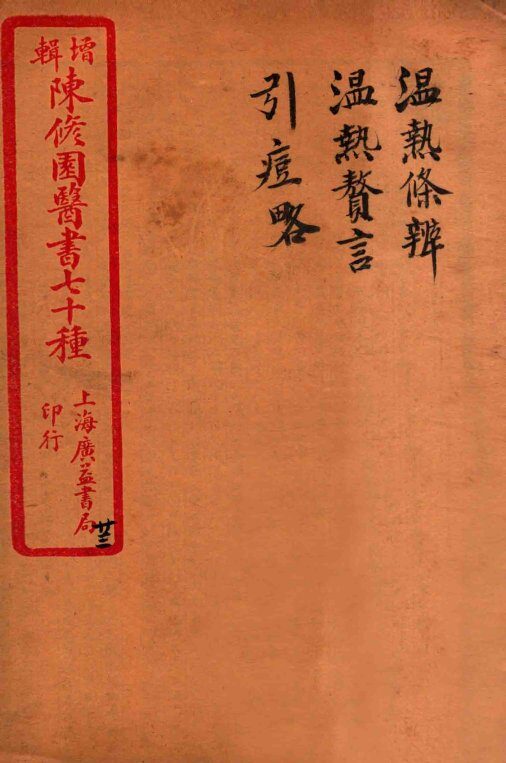 温熱條辨
温熱贅言
引痘略
增輯
陳修園醫書七十種
上海廣益書局
印行
廿三